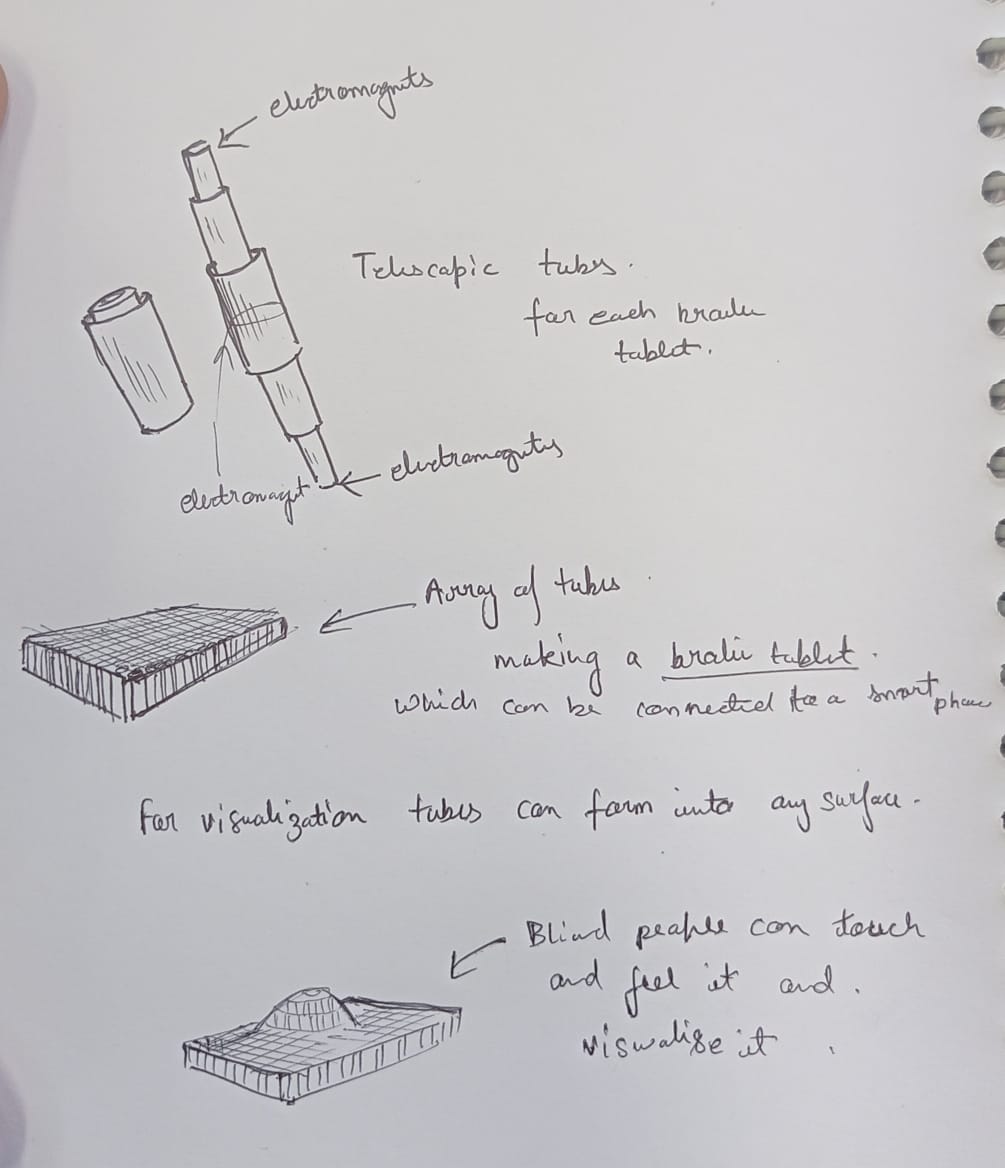 electromagnets
Telescopic tubes.
for each braile
tablet.
electromagnets
electromagnet
Array of tubes
making a braile tablet.
which can be connected to a smart phone
For visualization tubes can form into any surface.
Blind people can touch
and feel it and.
viswalise it .